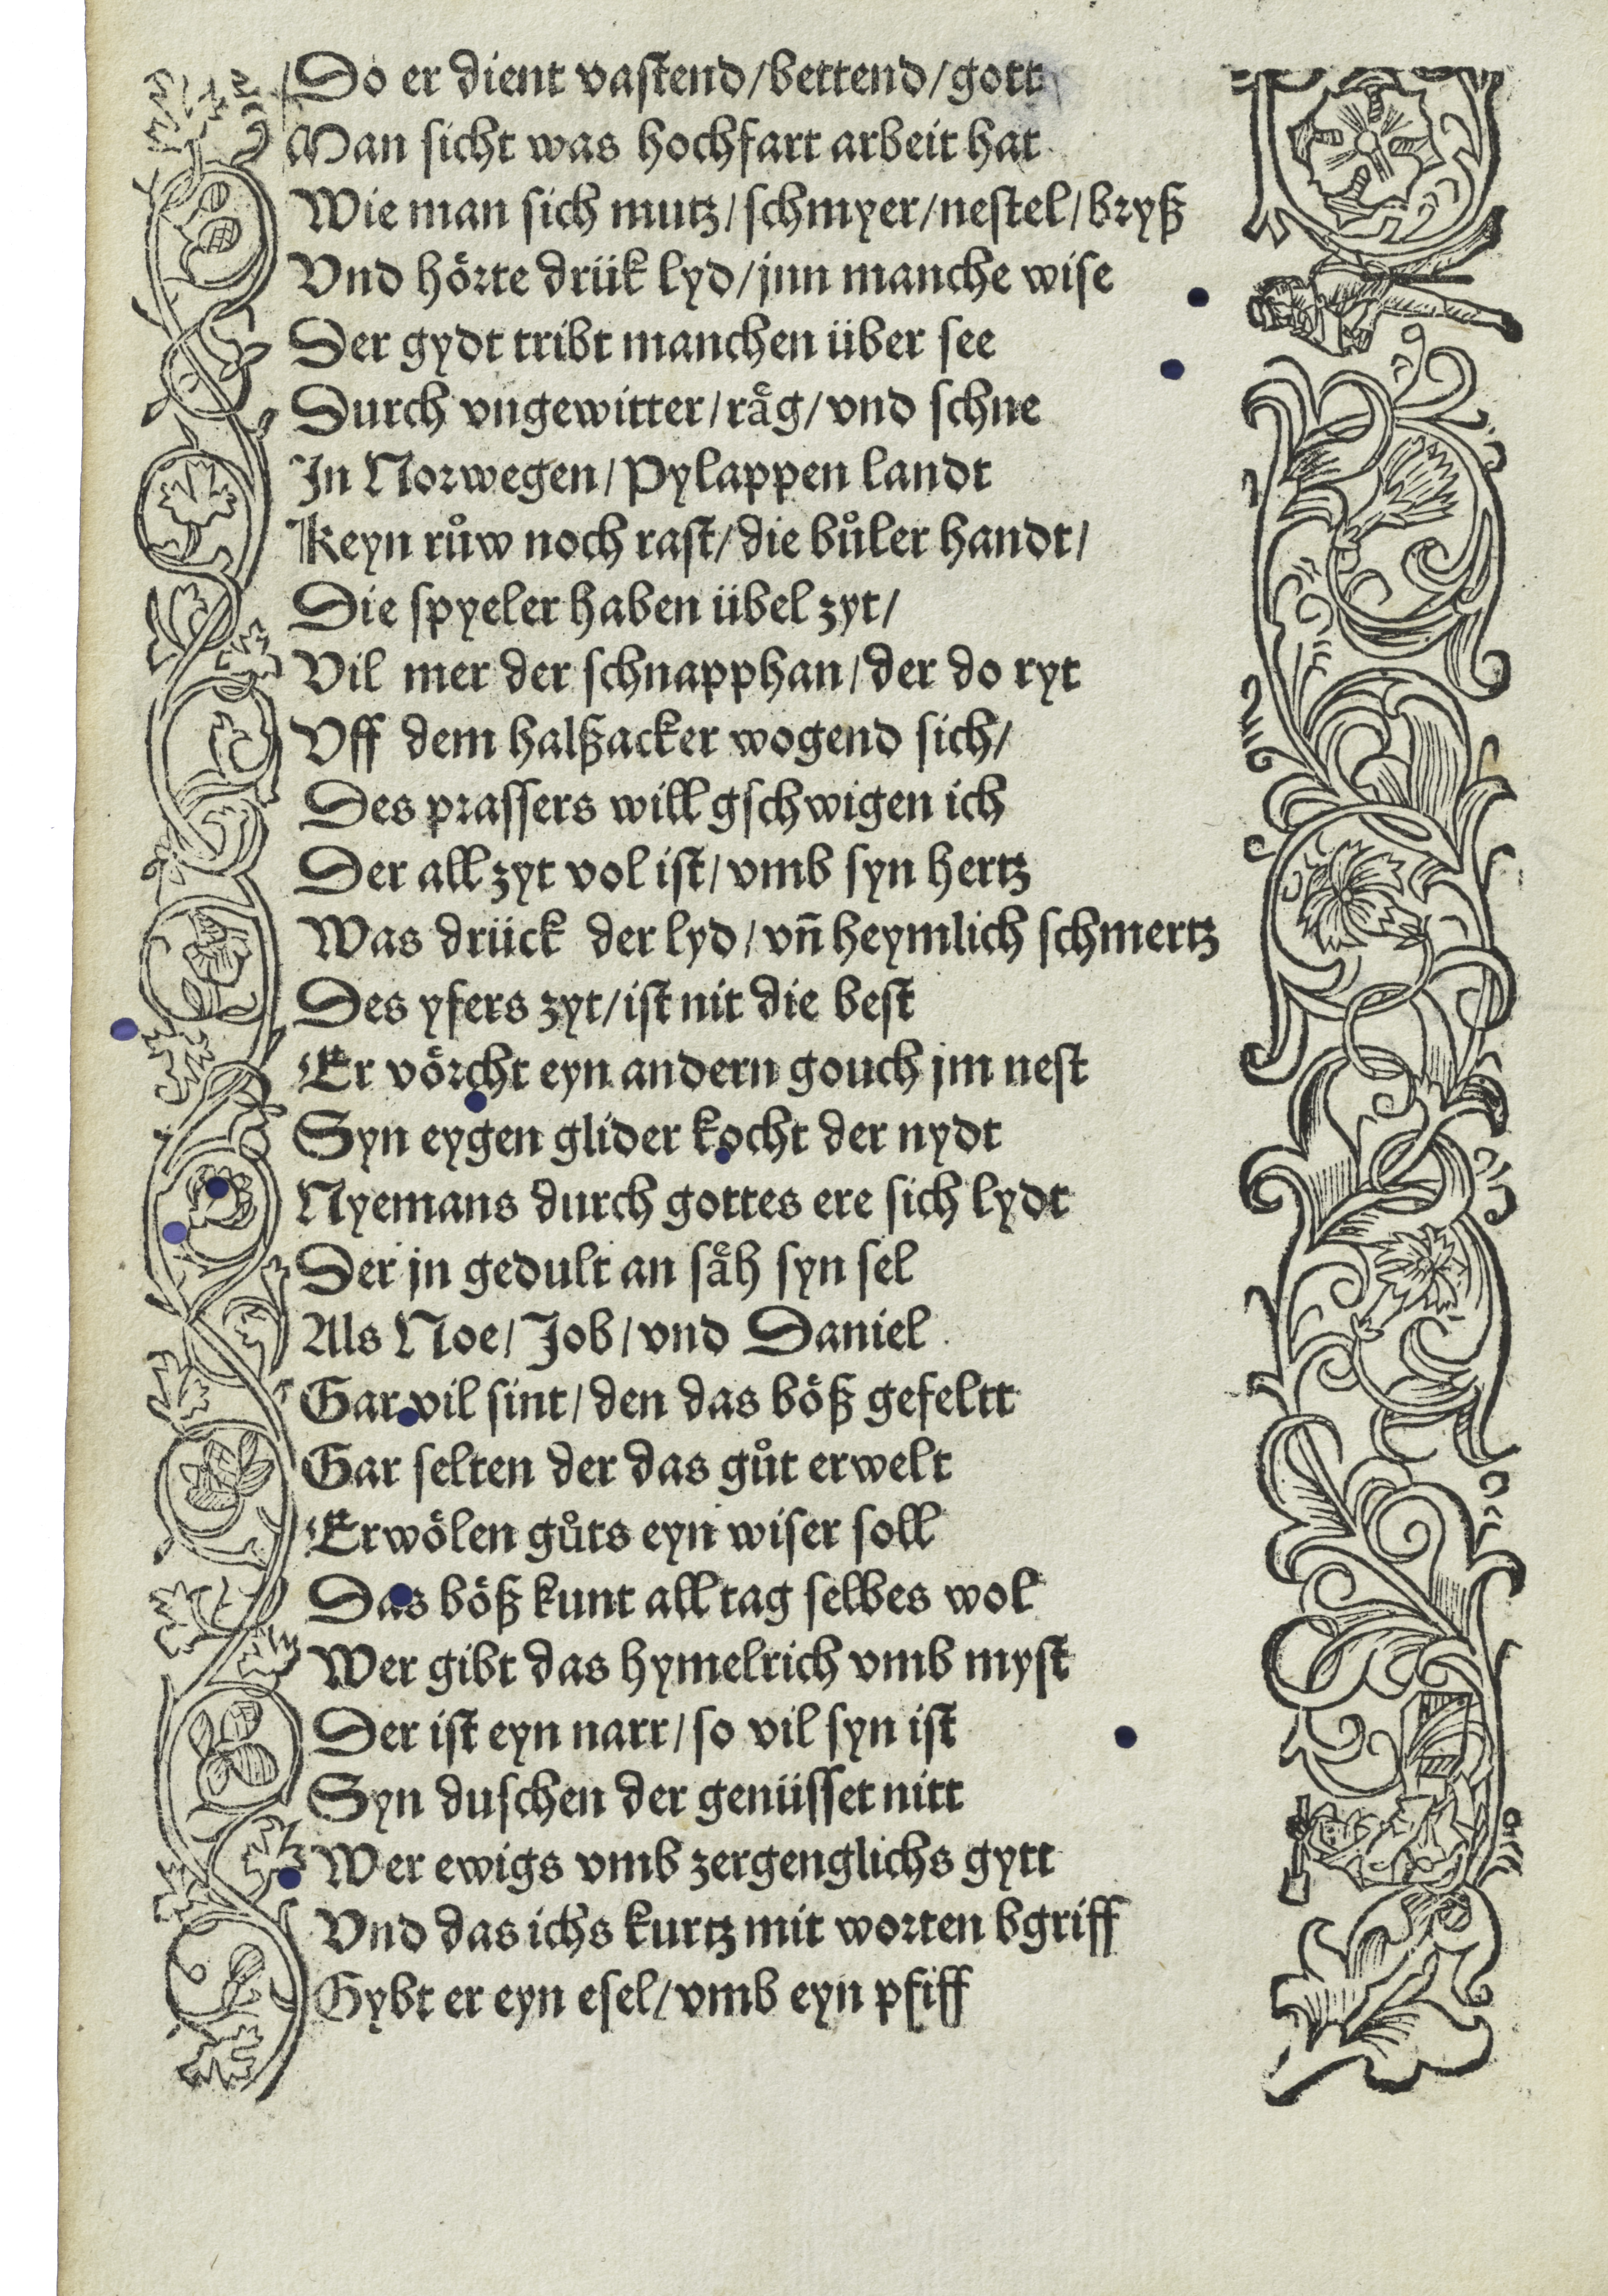 Do er dient vastend/bettend/gott
Man sicht was hochfart arbeit hat
Wie man sich mutz/schmyer/nestel/bryß
Vnd hoͤrte druͤk lyd/jnn manche wise
Der gydt tribt manchen über see
Durch vngewitter/raͤg/vnd schne
In Norwegen/Pylappen landt
Keyn ruͦw noch rast/die buͦler handt/
Die spyeler haben übel zyt/
Vil mer der schnapphan/der do ryt
Vff dem halßacker wogend sich/
Des prassers will gschwigen ich
Der all zyt vol ist/vmb syn hertz
Was drück der lyd/vñ heymlich schmertz
Des yfers zyt/ist nit die best
Er voͤrcht eyn andern gouch jm nest
Syn eygen glider kocht der nydt
Nyemans durch gottes ere sich lydt
Der jn gedult an saͤh syn sel
Als Noe/Job/vnd Daniel
Gar vil sint/den das boͤß gefeltt
Gar selten der das guͦt erwelt
Erwoͤlen guͦts eyn wiser soll
Das boͤß kunt all tag selbes wol
Wer gibt das hymelrich vmb myst
Der ist eyn narr/so vil syn ist
Syn duschen der genüsset nitt
Wer ewigs vmb zergenglichs gytt
Vnd das ichs kurtz mit worten bgriff
Gybt er eyn esel/vmb eyn pfiff